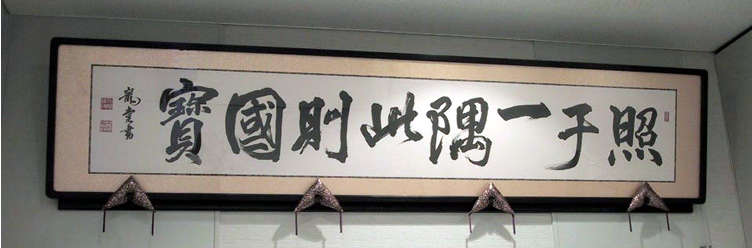 照于一隅此則國寶
龍堂書